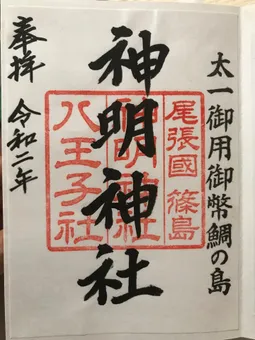 太一御用御幣鯛の島
神明神社
奉拝
令和二年
尾張國篠島
神明神社
八王子社